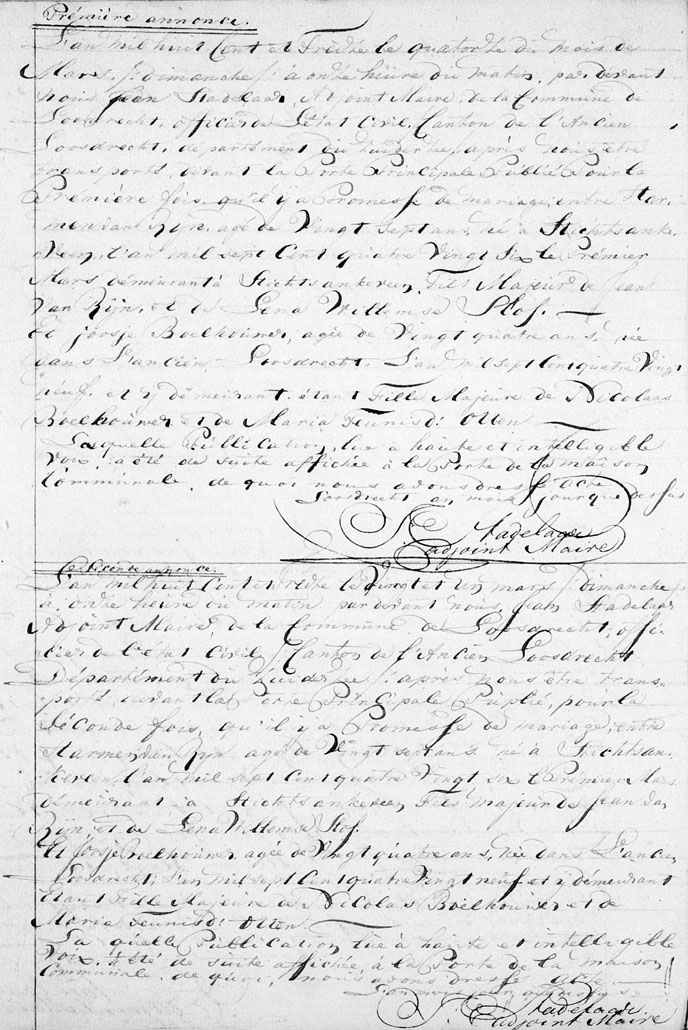 Prémière annonce.
L'an mil huit Cent et Treize le quatorze du mois de
Mars /: dimanche :/ à onze heure du matin, par devant
nous Jean Stadelaar, Adjoint Maire, de la Commune de
Loosdrecht, officier de L'état Civil, Canton de l'Ancien
Loosdrecht, département du Zuiderzee, après nous être
transporté, devant la Porte Principale Publié Pour la
Première fois, qu'il y a Promesse de mariage, entre Har-
men van Ryn, agé de Vingt sept ans, né à Stichtsanke-
veen, l'an mil sept Cent quatre Vingt Six le Prémier
Mars démeurant à Stichtsankeveen, Fils Majeur de Jean
van Rÿn, et de Lena Willemse Slof.
Et Joosje Boelhouwer, agée de Vingt quatre ans, née
dans L'ancien Loosdrecht, L'an mil sept Cent quatre Vingt
neuf, et y démeurant, étant Fille Majeure de Nicolaas
Boelhouwer et de Maria Teunisd: Otten
Laquelle Publication, lue à haute et intelligible
voix, a été de suite affichée à la Porte de la maison
Communale, de quoi nous avons dressé acte
Loosdrecht au mois jour que dessus
J. Stadelaar
adjoint Maire
Seconde annonce.
L'an mil huit Cent et Treize le Vingt et un mars /: Dimanche :/
à onze heure du matin par devant nous, Jean Stadelaar
Adjoint Maire, de la Commune de Loosdrecht, offi-
cier de l'état Civil, Canton de l'Ancien Loosdrecht
Département du Zuiderzee, après nous être trans-
porté, devant la Porte Principale Publié, pour la
séconde fois, qu'il y a Promesse de mariage, entre
Harmen van Ryn agé de Vingt sept ans né à Stichtsan-
keveen l'an mil sept Cent quatre Vingt six le Premier Mars
démeurant à Stichtsankeveen, Fils majeur de Jean van
Rÿn, et de Lena Willemse Slof.
Et Joosje Boelhouwer, agée de Vingt quatre ans, née dans L'ancien
Loosdrecht, l'an mil sept Cent quatre Vingt neuf et y démeurant
étant Fille Majeure de Nicolas Boelhouwer et de
Maria Teunisd: Otten
La quelle Publication lue à haute et intelligible
voix, a été de suite affichée, à la Porte de la maison
Communale, de quoi, nous avons dressé acte
J. Stadelaar
adjoint Maire